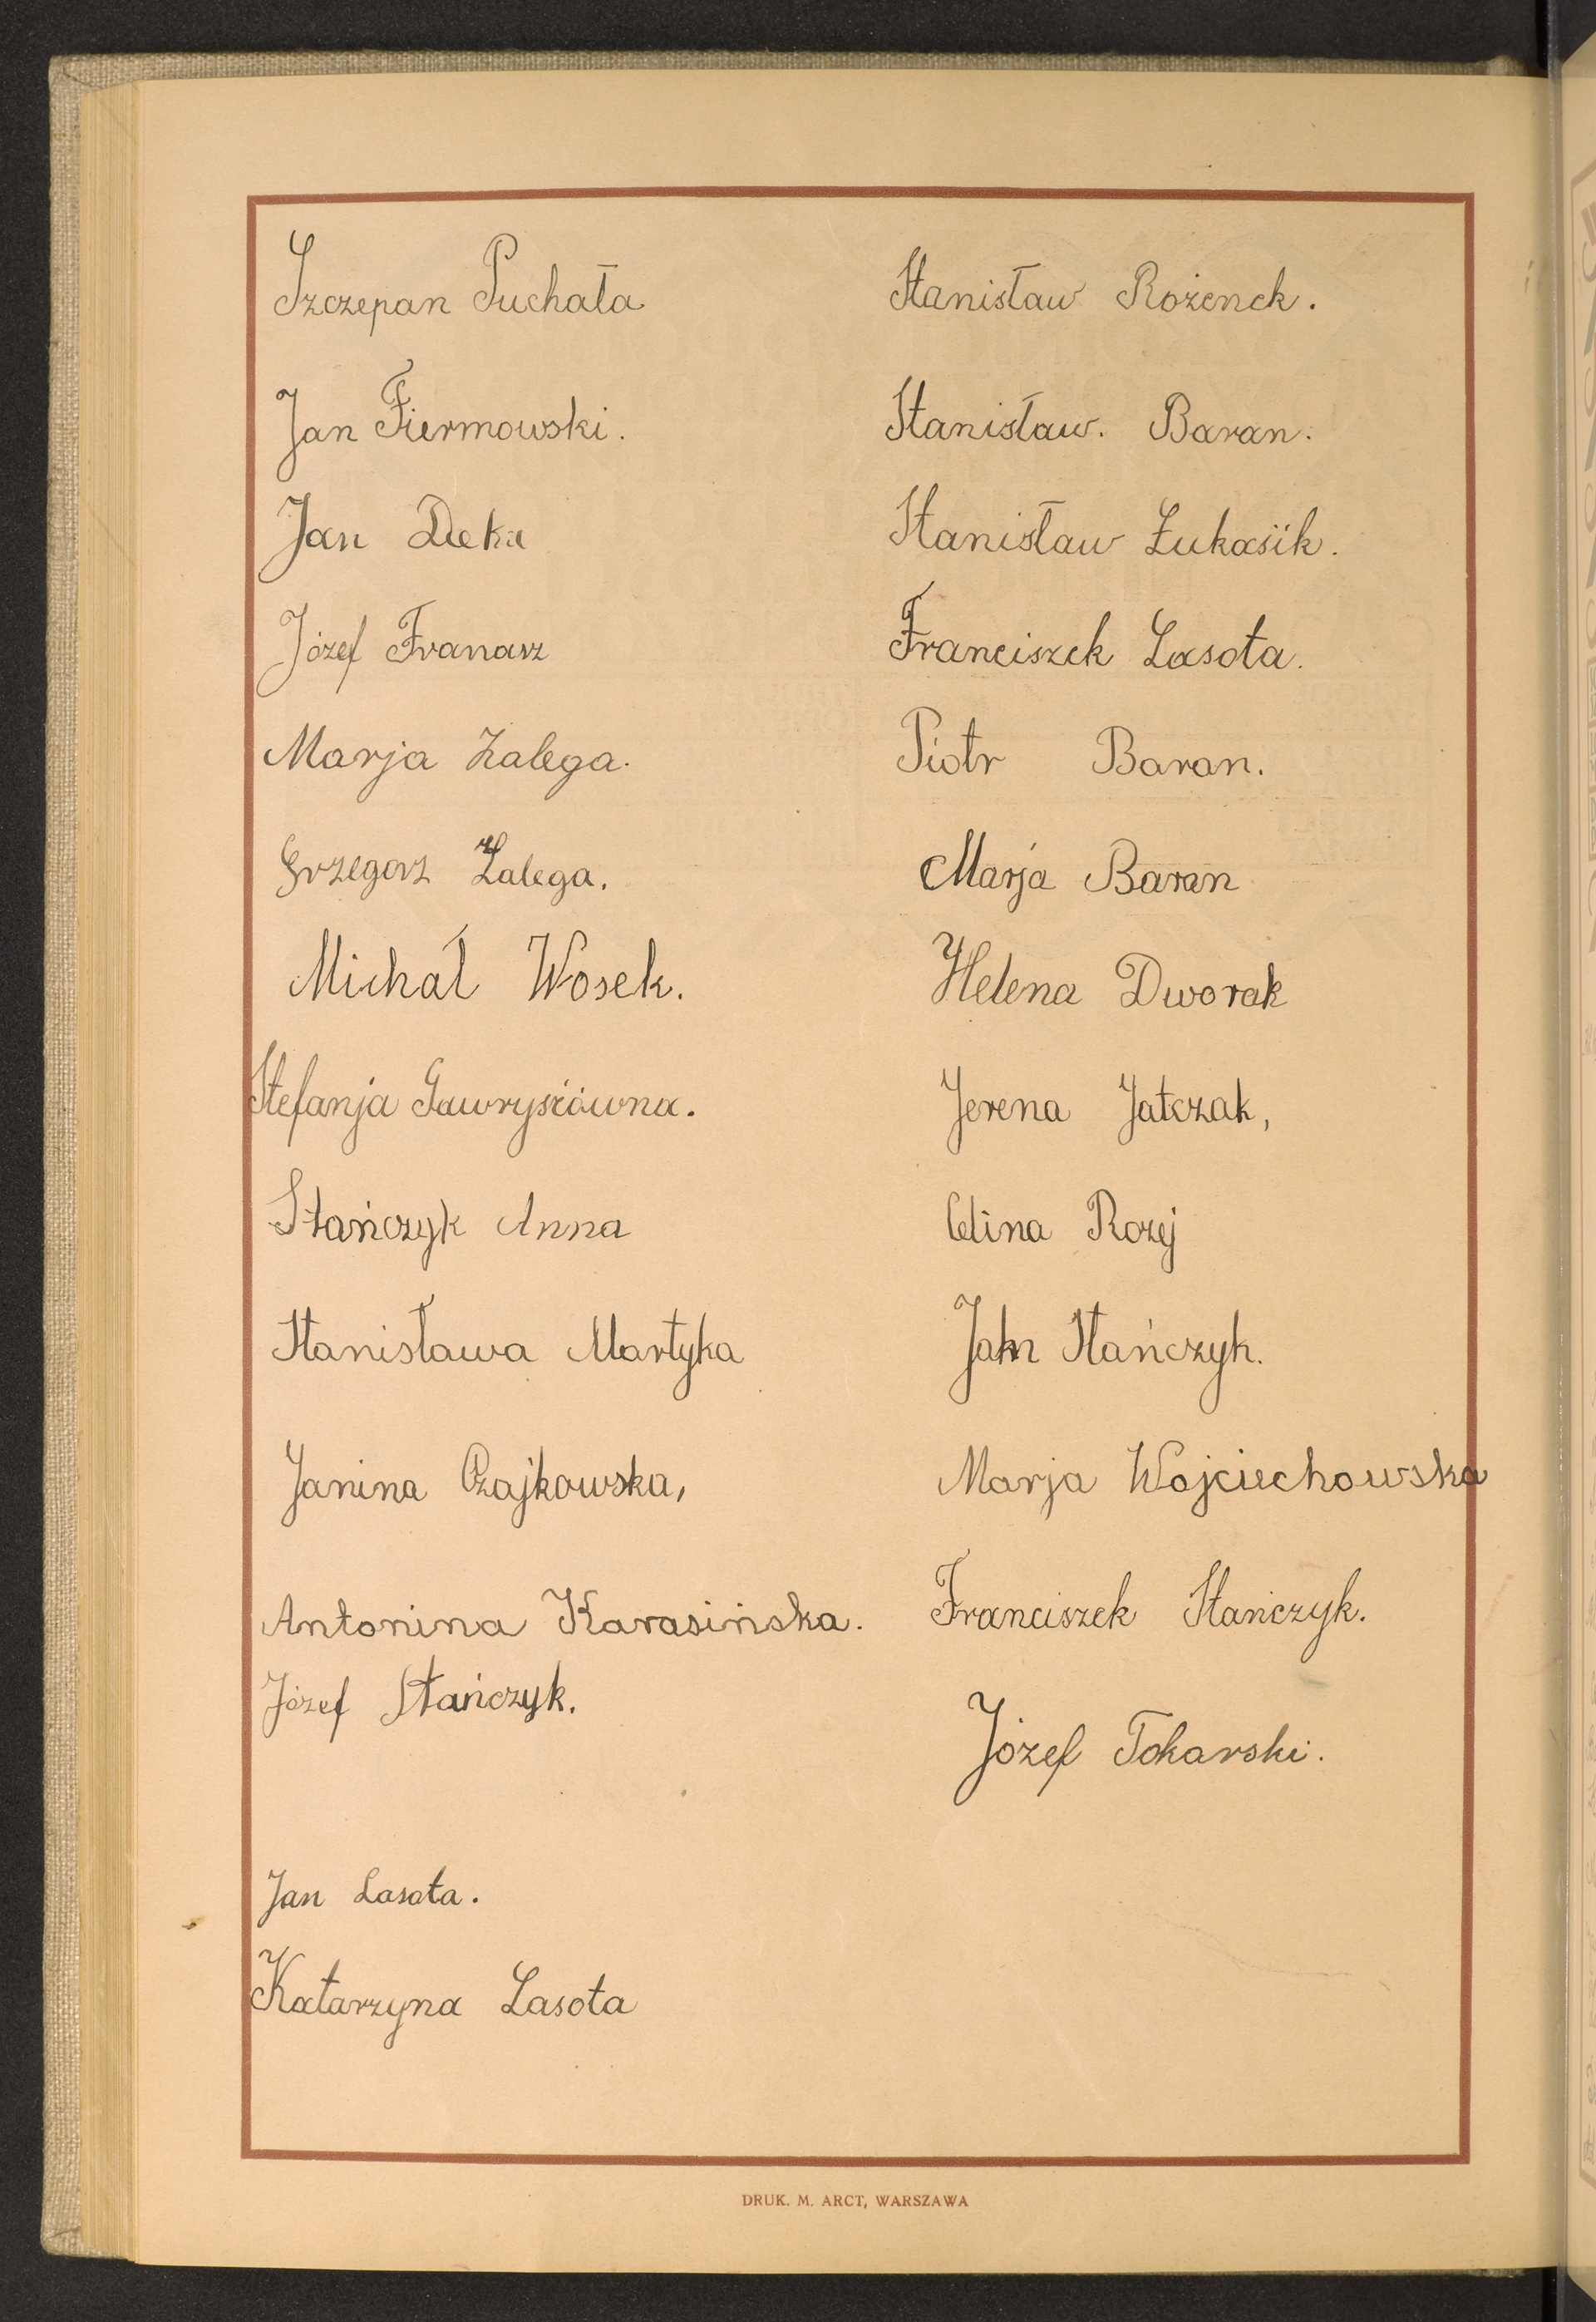 Szczepan Puchała
Jan Fiermowski.
Jan Deka
Józef Franasz
Marja Zalega.
Grzegorz Zalega.
Michał Wosek.
Stefanja Gawrysiówna.
Stańczyk Anna
Stanisława Martyka
Janina Czajkowska,
Antonina Karasińska.
Józef Stańczyk.
Jan Lasota.
Katarzyna Lasota
Stanisław Rożenek.
Stanisław. Baran.
Stanisław Łukasik.
Franciszek Lasota.
Piotr Baran.
Marja Baran
Helena Dworak
Jerena Jatczak,
Celina Rozej
Jan Stańczyk.
Marja Wojciechowska
Franciszek Stańczyk.
Józef Tokarski.
DRUK. M. ARCT, WARSZAWA